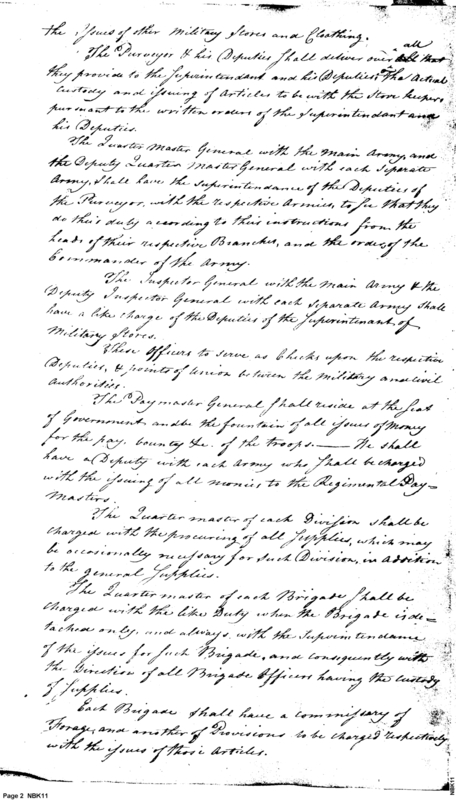 the Issues of other Military Stores and Cloathing.
The Purveyor & his Deputies shall deliver over all that
they provide to the Superintendant and his Deputies. The Actual
custody and issuing of Articles to be with the Store keepers
pursuant to the written orders of the Superintendant and
his Deputies.
The Quarter Master General with the Main Army, and
the Deputy Quarter Master General with each Separate
Army, shall have the superintendance of the Deputies of
the Purveyor, with the respective Armies, to see that they
do their duty according to their instructions from the
heads of their respective Branches, and the orders of the
Commander of the Army.
The Inspector General with the main Army & the
Deputy Inspector General with each Separate Army shall
have a like charge of the Deputies of the Superintenant of
Military Stores.
These Officers to serve as Checks upon the respective
Deputies, & points of Union between the Military and civil
Authorities.
The Paymaster General shall reside at the Seat
of Government and be the fountain of all issues of Money
for the pay, bounty &c. of the troops. — He shall
have a Deputy with each Army who shall be charged
with the issuing of all monies to the Regimental Pay=
Masters.
The Quarter master of each Division shall be
charged with the procuring of all Supplies, which may
be occasionally necessary for such Division, in addition
to the general Supplies.
The Quarter master of each Brigade shall be
charged with the like Duty when the Brigade is de=
tached only, and always with the Superintendance
of the issues for such Brigade, and consequently with
the direction of all Brigade Officers having the custody
of Supplies.
Each Brigade shall have a commissary of
Forage, and another of Provisions to be charged respectively
with the issues of those Articles.
Page 2 NBK11
NBK11